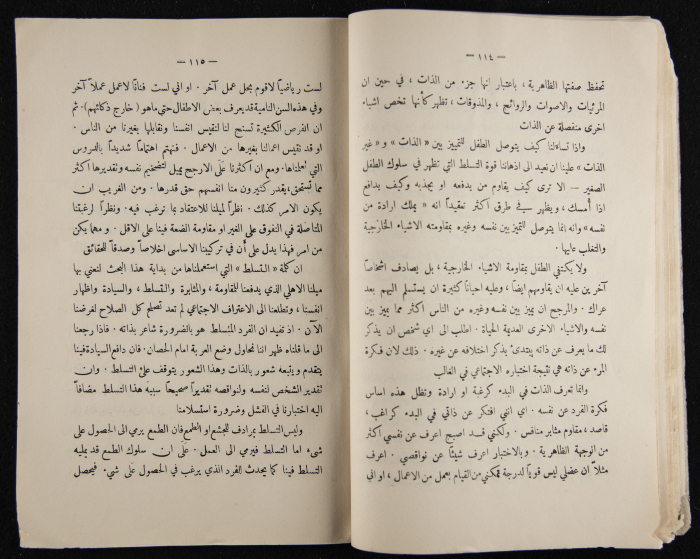 — ١١٤ —
تحتفظ صفتها الظاهرية ، باعتبار انها جزء من الذات ، في حين ان
المرئيات والاصوات والروائح ، والمذوقات ، تظهر كأنها تخص اشياء
اخرى منفصلة عن الذات
واذا تساءلنا كيف يتوصل الطفل للتمييز بين « الذات » و « غير
الذات » علينا ان نعيد الى اذهاننا قوة التسلط التي تظهر في سلوك الطفل
الصغير — الا ترى كيف يقاوم من يدفعه او يجذبه وكيف يدافع
اذا أُمسك ، ويظهر سيفي طرق اكثر تعقيداً انه « يملك ارادة من
نفسه » وانه انما يتوصل للتمييز بين نفسه وغيره بمقاومته الاشياء الخارجية
والتغلب عليها .
ولا يكتفي الطفل بمقاومة الاشياء الخارجية ، بل يصادف اشخاصاً
آخرين عليه ان يقاومهم ايضاً ، وعليه احياناً كثيرة ان يستسلم اليهم بعد
عراك . والمرجح ان يميز بين نفسه وغيره من الناس اكثر مما يميز بين
نفسه والاشياء الاخرى العديمة الحياة . اطلب الى اي شخص ان يذكر
لك ما يعرف عن ذاته يبتدئ بذكر اختلافه عن غيره . ذلك لان فكرة
المرء عن ذاته هي نتيجة اختباره الاجتماعي في الغالب
وانما تعرف الذات في البدء كرغبة او ارادة وتظل هذه اساس
فكرة الفرد عن نفسه . اي انني افتكر عن ذاتي في البدء كراغب ،
قاصد ، مقاوم مثابر منافس . ولكني قد اصبح اعرف عن نفسي اكثر
من الوجهة الظاهرية . وبالاختبار اعرف شيئاً عن نواقصي . اعرف
مثلاً ان عضلي ليس قوياً لدرجة تمكنني من القيام بعمل من الاعمال ، او اني
— ١١٥ —
لست رياضياً لاقوم بحل عمل آخر . او اني لست فناناً لاعمل عملاً آخر
وفي هذه السن النامية قد يعرف بعض الاطفال حتى ما هو ( خارج ذكائهم ) . ثم
ان الفرص الكثيرة تسنح لنا لنقيس انفسنا ونقابلها بغيرنا من الناس .
او قد نقيس اعمالنا بغيرها من الاعمال . فنهتم اهتماماً شديداً بالدروس
التي نعملها. ومع ان اكثرنا على الارجح يميل لتضخيم نفسه وتقديرها اكثر
مما تستحق، يقدر كثيرون منا انفسهم حق قدرها . ومن الغريب ان
يكون الامر كذلك . نظراً لميلنا للاعتقاد بما نرغب فيه . ونظراً لرغبتنا
المتأصلة في التفوق على الغير او مقاومة الضعة فينا على الاقل . و مهما يكن
من امر فهذا يدل على أن في تركيبنا الاساسي اخلاصاً وصدقاً للحقائق
ان كلمة « التسلط » التي استعملناها من بداية هذا البحث لنعني بها
ميلنا الاهلي الذي يدفعنا للمقاومة ، والمثابرة والتسلط ، والسيادة واظهار
انفسنا ، وتطلعنا الى الاعتراف الاجتماعي لم تعد تصلح كل الصلاح لغرضنا
الآن . اذ نفيد ان الفرد المتسلط هو بالضرورة شاعر بذاته . فاذا رجعنا
الى ما قلناه ظهر اننا نحاول وضع العربة امام الحصان . فان دافع السيادة فينا
يتقدم ويتبعه شعور بالذات وهذا الشعور يتوقف على التسلط . وان
تقدير الشخص لنفسه ولنواقصه تقديراً صحيحاً سببه هذا التسلط مضافاً
اليه اختبارنا في الفشل وضرورة استسلامنا
وليس التسلط بمرادف للجشع او الطمع فان الطمع يرمي الى الحصول على
شيء اما التسلط فيرمي الى العمل . على ان سلوك الطمع قد يمليه
التسلط فينا كما يحدث للفرد الذي يرغب في الحصول على شيء . فيحصل